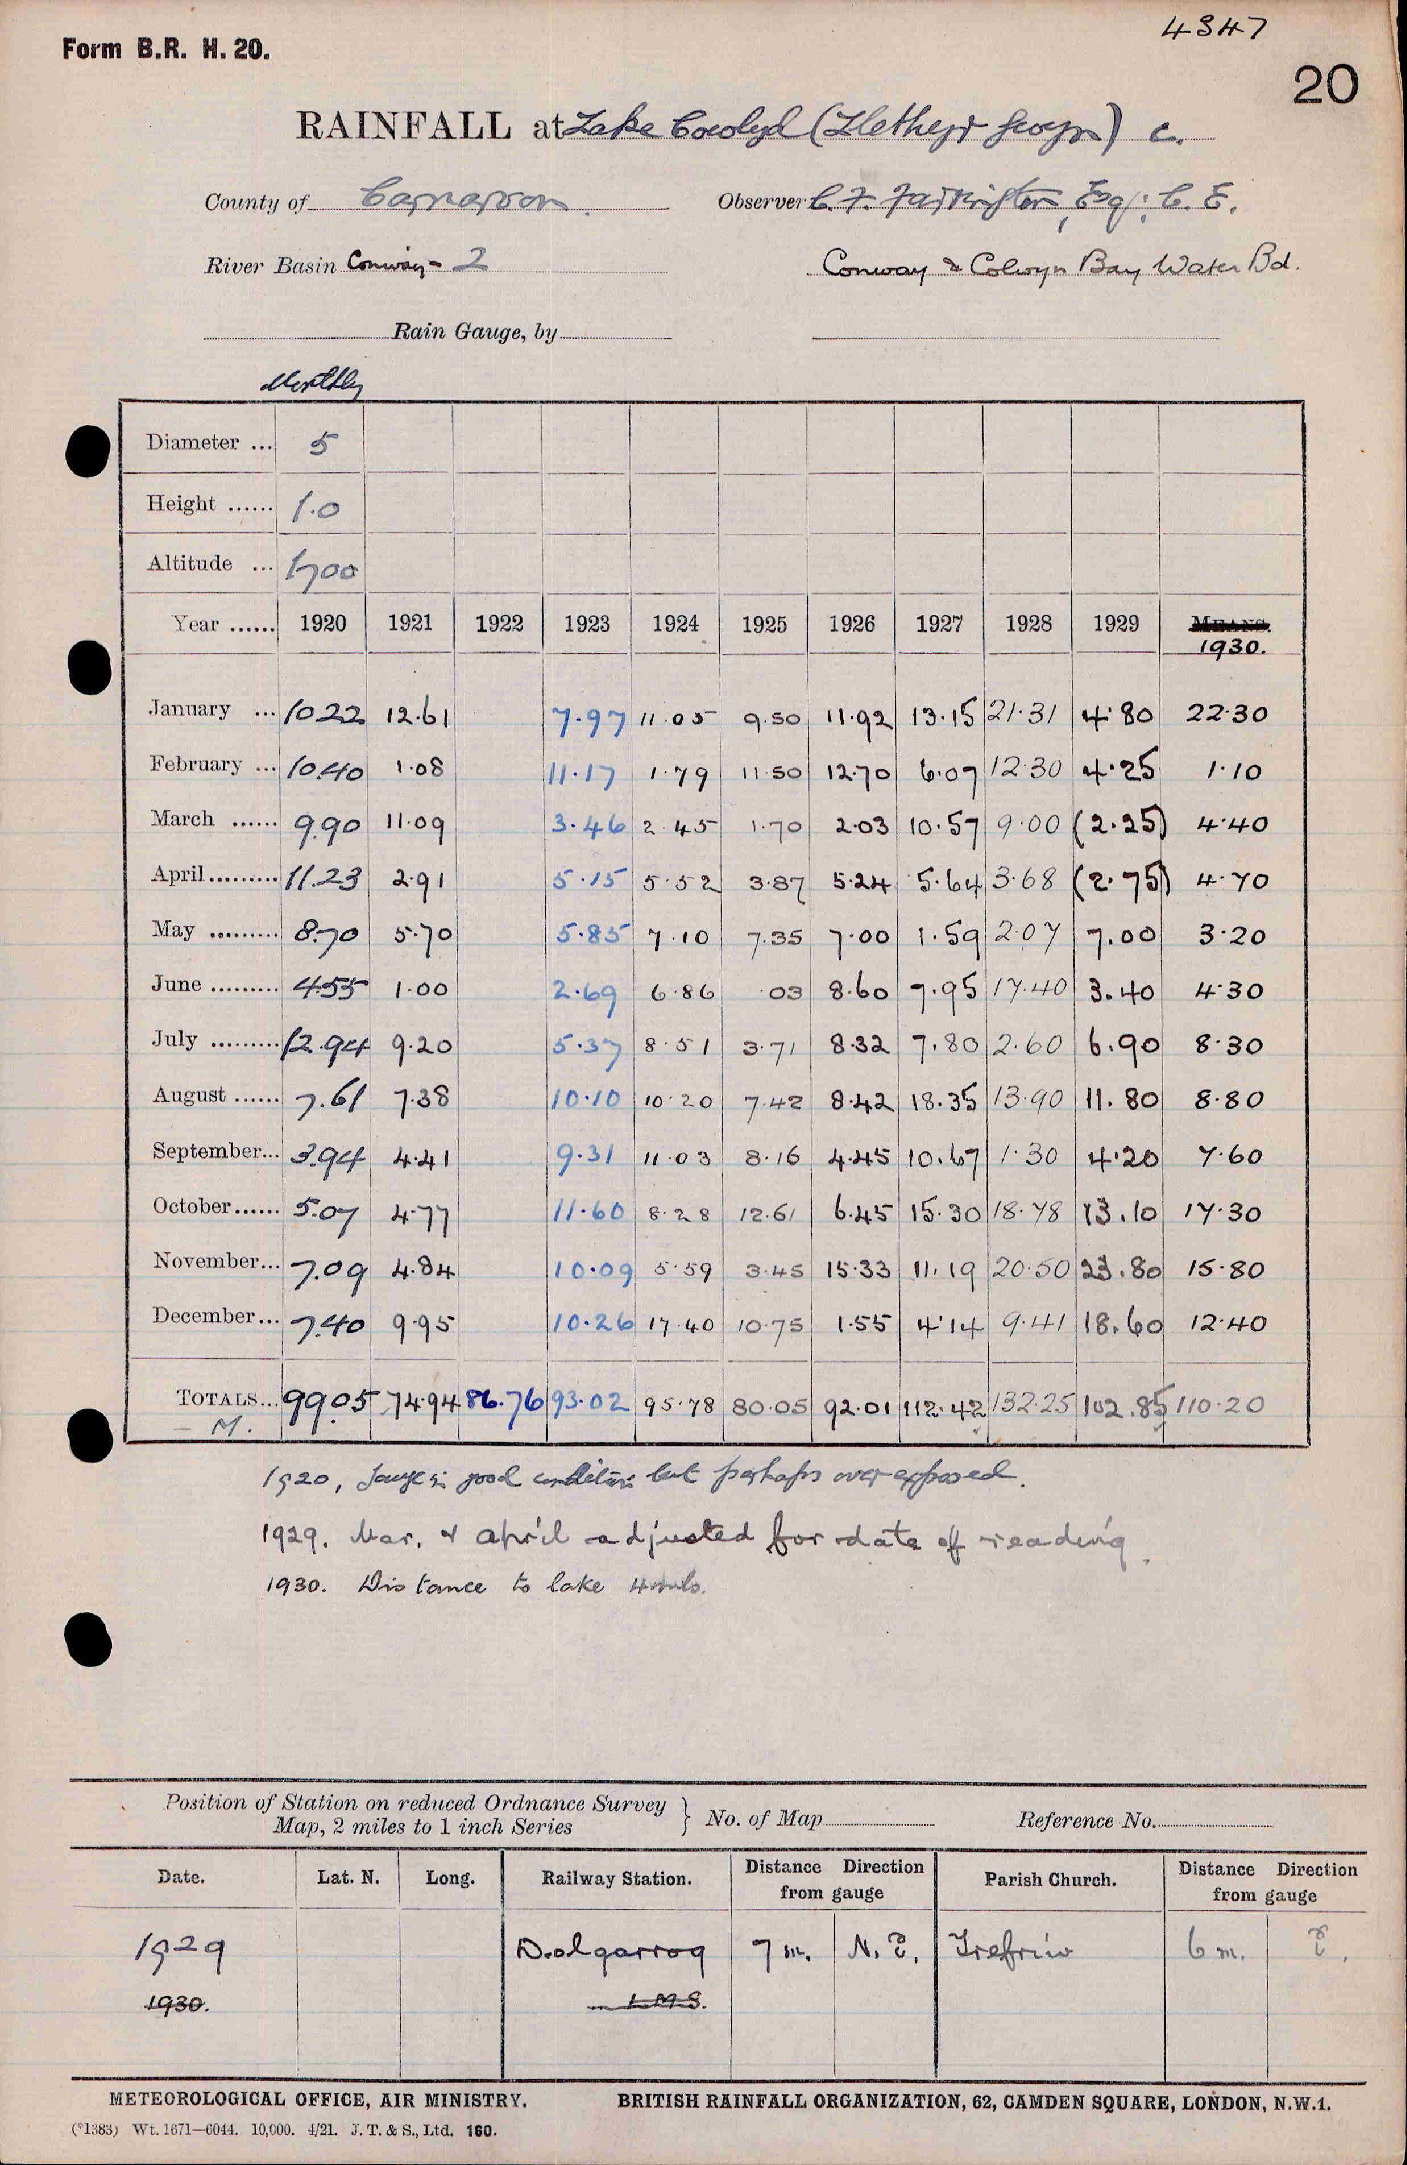 4347
Form B.R. H. 20.
20
RAINFALL at Lake Cowlyd (Llethyr Gwyn) C.
County of Carnarvon. Observer C. F. Farrington, Esq; C. E.
River Basin Conway - 2 Conway & Colwyn Bay Water Bd.
Rain Gauge, by
Monthly
Diameter ... 5
Height ...... 1.0
Altitude ... 1700
Year ...... 1920 1921 1922 1923 1924 1925 1926 1927 1928 1929 MEANS.
1930.
January ... 10.22 12.61 7.97 11.05 9.50 11.92 13.15 21.31 4.80 22.30
February ... 10.40 1.08 11.17 1.79 11.50 12.70 6.07 12.30 4.25 1.10
March ...... 9.90 11.09 3.46 2.45 1.70 2.03 10.57 9.00 (2.25) 4.40
April ......... 11.23 2.91 5.15 5.52 3.87 5.24 5.64 3.68 (2.75) 4.70
May ......... 8.70 5.70 5.85 7.10 7.35 7.00 1.59 2.07 7.00 3.20
June ......... 4.55 1.00 2.69 6.86 .03 8.60 7.95 17.40 3.40 4.30
July ......... 12.94 9.20 5.37 8.51 3.71 8.32 7.80 2.60 6.90 8.30
August ...... 7.61 7.38 10.10 10.20 7.42 8.42 18.35 13.90 11.80 8.80
September... 3.94 4.41 9.31 11.03 8.16 4.45 10.67 1.30 4.20 7.60
October ...... 5.07 4.77 11.60 8.28 12.61 6.45 15.30 18.78 13.10 17.30
November... 7.09 4.84 10.09 5.59 3.45 15.33 11.19 20.50 23.80 15.80
December... 7.40 9.95 10.26 17.40 10.75 1.55 4.14 9.41 18.60 12.40
TOTALS... 99.05 74.94 86.76 93.02 95.78 80.05 92.01 112.42 132.25 102.85 110.20
- M.
1920, Gauge in good condition but perhaps over exposed.
1929. Mar. & April adjusted for date of reading.
1930. Distance to lake
Position of Station on reduced Ordnance Survey
Map, 2 miles to 1 inch Series } No. of Map Reference No.
Date. Lat. N. Long. Railway Station. Distance Direction from gauge Parish Church. Distance Direction from gauge
1929 Dolgarrog 7 m. N. E. Trefriw 6 m. E.
1930. L M S.
METEOROLOGICAL OFFICE, AIR MINISTRY. BRITISH RAINFALL ORGANIZATION, 62, CAMDEN SQUARE, LONDON, N.W.1.
(*1383) Wt. 1671—6044. 10,000. 4/21. J. T. & S., Ltd. 160.